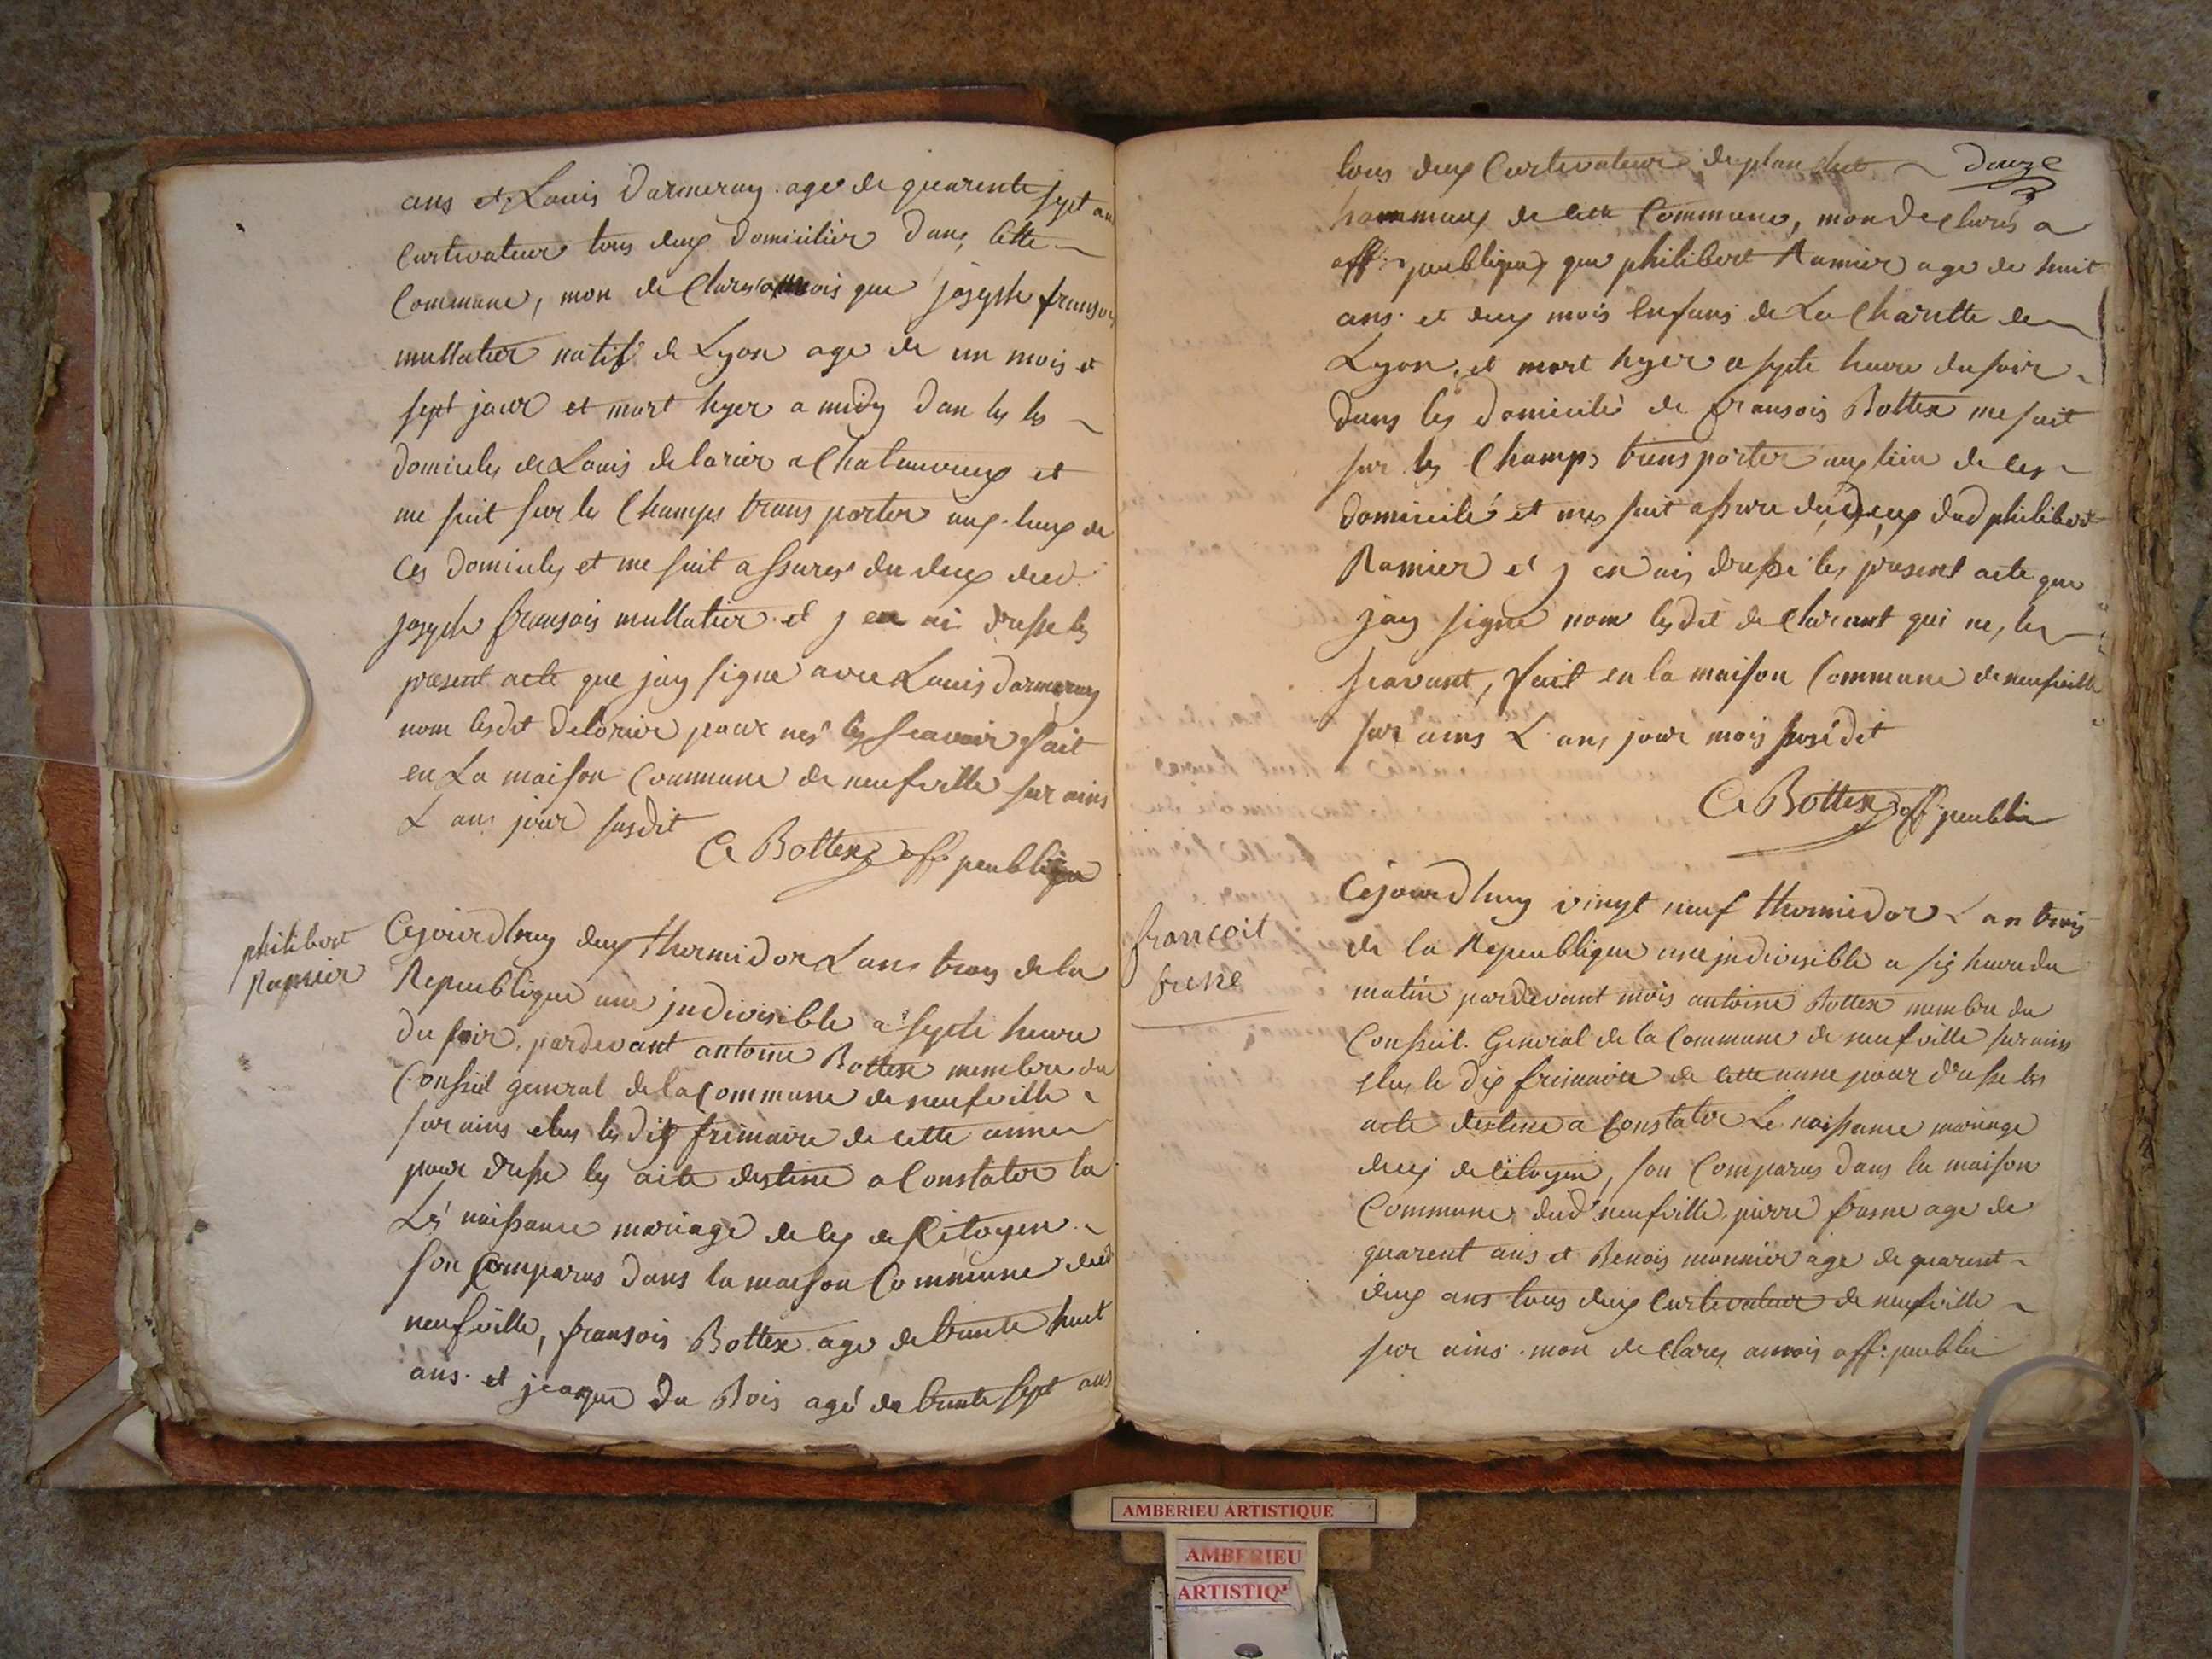 ans et Louis Darmeray age de quarente sept an
Curtivateur tous deux domicilier dans cette
Commune, mon de Clares a mois que joseph fransois
mullatier natif de Lyon age de un mois et
sept jour et mort hyer a midy dan les
domiciles de Louis delorier a Chateauvieux et
me suit sur les Champs trans porter aux lieux de
Ces domiciles et me suit assures du deux dud.
joseph fransois mullatier et j en ai dresse les
present acte que jay signe avec Louis Darmeray
nom lesdit delorier pour nes les scavoir fait
en La maison Commune de neufville sur ains
L ans jour susdit
A Bottex off. peublique
philibert
Ramier
Cejourdhuy deux thermidor L ans troy de la
Republique une jndivisible a septe heure
du soir, pardevant antoine Bottex membre du
Conseil general de la Commune de neufville
sur ains elus les dix frimaire de cette annee
pour dresse les acte destine a Constater la
Le naissance mariage deces de Citoyen
son Comparus dans la maison Commune dud
neufville, fransois Bottex age de trente huit
ans et jeaque Du Bois agé de trente sept ans
douze
tous deux Curtivateur de planchet
hammaux de cette Commune, mon de clarés a
off. peublique que philibert Ramier age de huit
ans et deux mois Enfans de La Charitte de
Lyon, et mort hyer a septe heure du soir
dans les domicile de fransois Bottex me suit
sur les Champs transporter aux lieu de ces
domicile et mes suit assure du deux dud philibert
Ramier et j en ais dresse les present acte que
jay signe nom lesdit de Clarant qui ne, les
scavant, fait en la maison Commune de neufville
sur ains L ans jour mois susédit
A Bottex off. peublic
francoit
frene
Cejourdhuy vingt neuf thermidor L an trois
de la Republique une jndivisible a six heure du
matin pardevant mois antoine Bottex membre du
Conseil General de la Commune de neufville sur ains
elus le dix frimaire de cette anne pour dresse les
acte destine a Constater Le naissance mariage
deces de citoyen, son Comparus dans la maison
Commune dud neufville, pierre frasne age de
quarent ans et Benois monnier age de quarent
deux ans tous deux Curtivateur de neufville
sur ains mon de clares a mois off. peublic
AMBERIEU ARTISTIQUE
AMBERIEU
ARTISTIQ